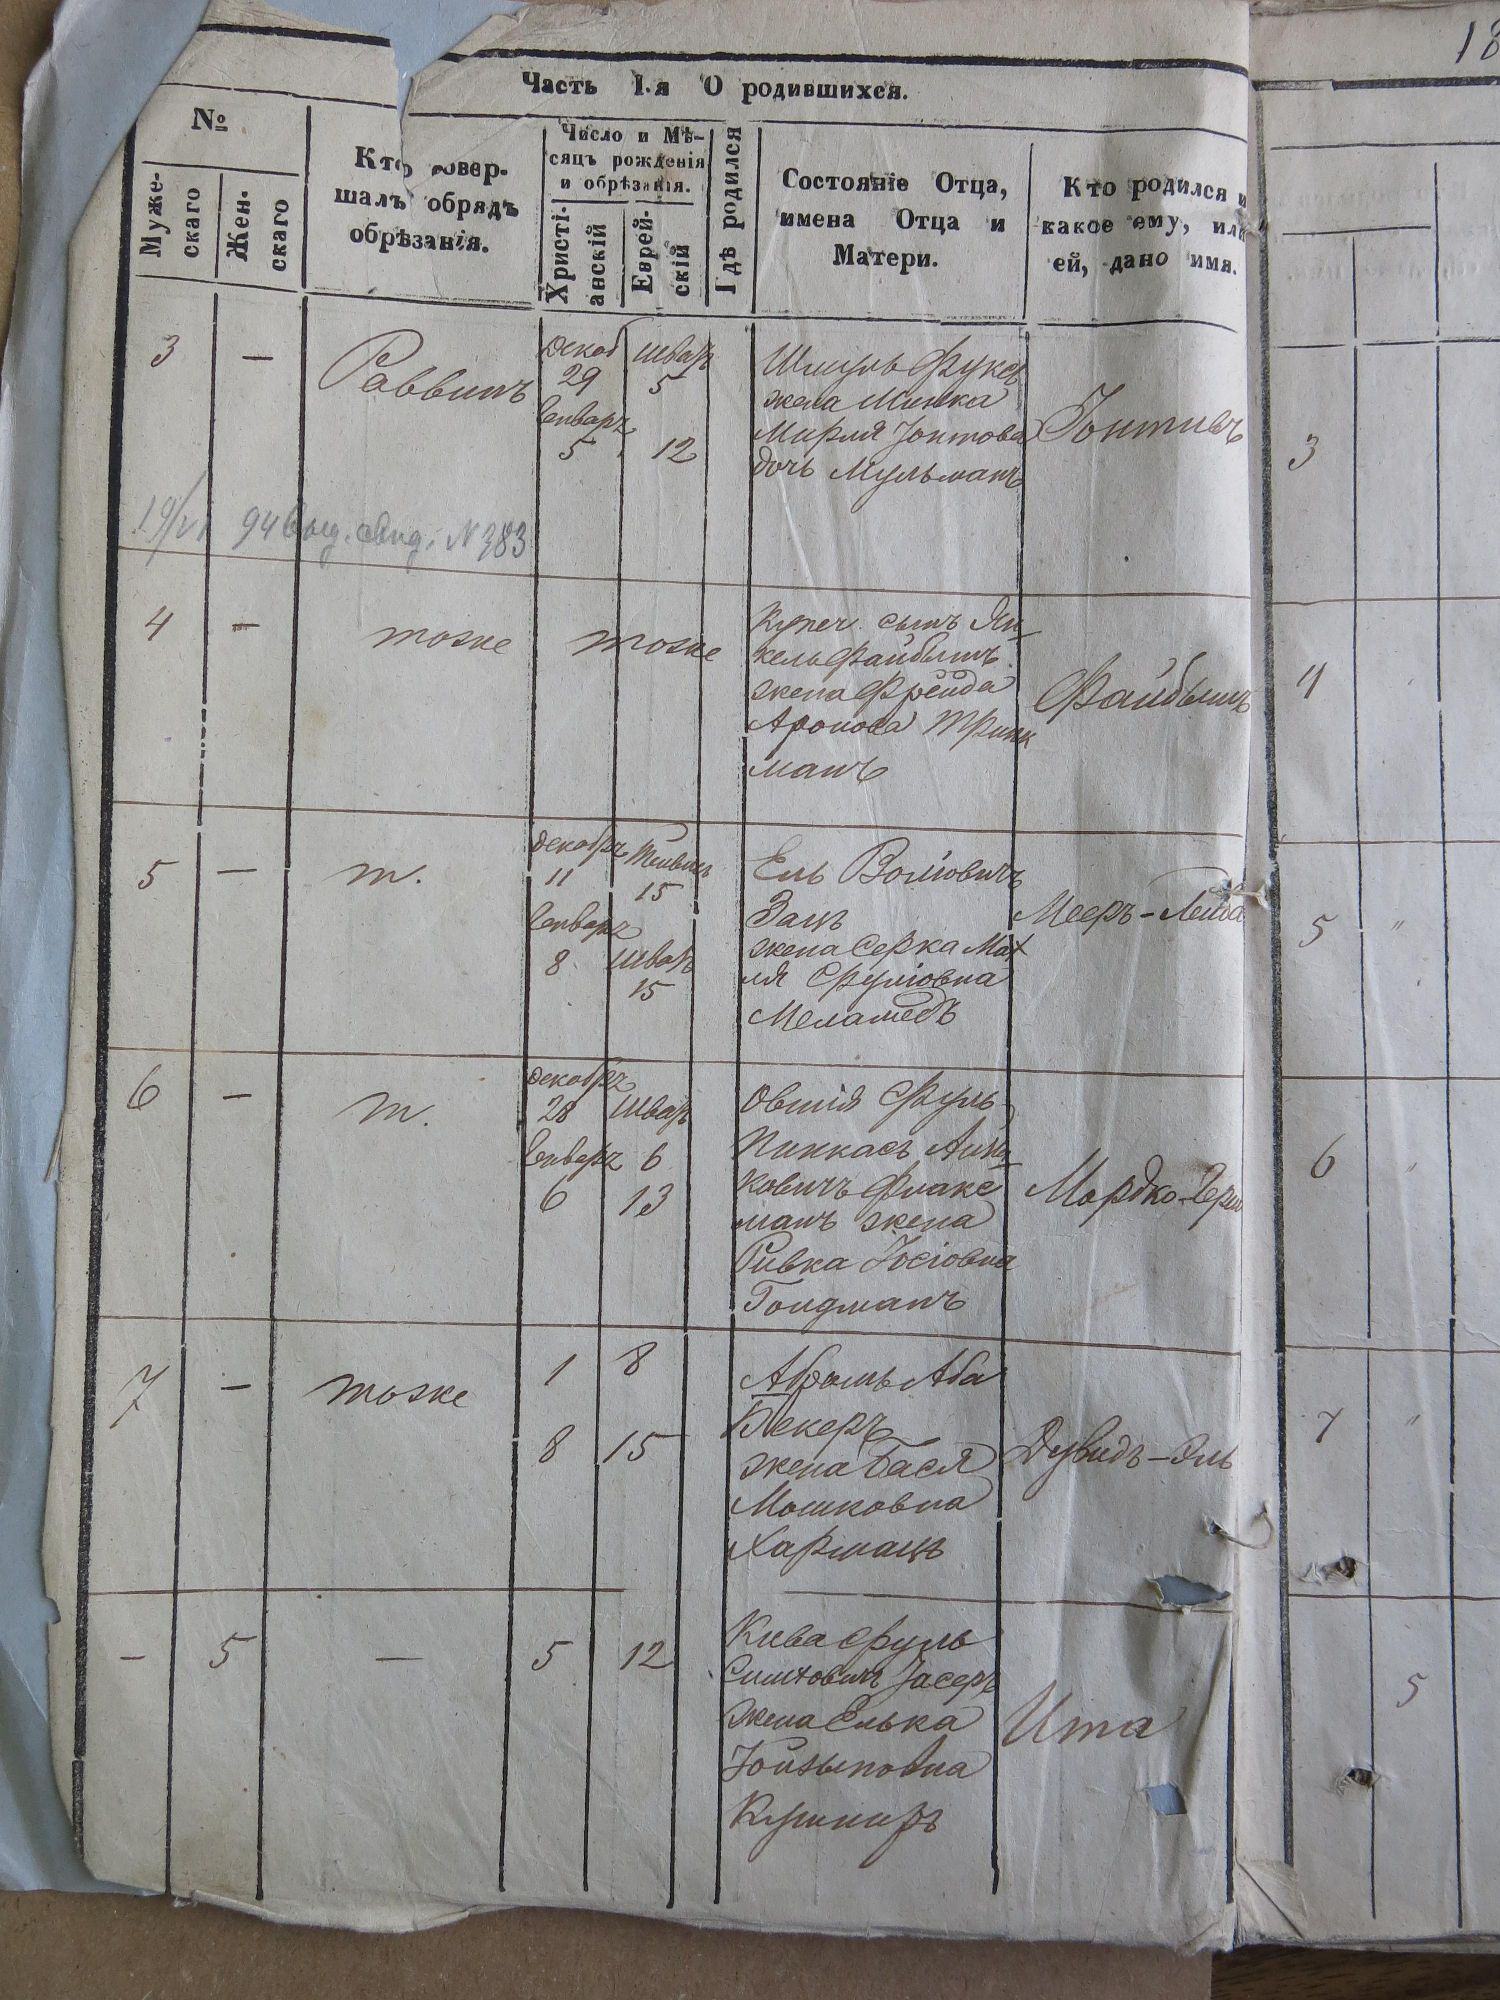 18
Часть I.я О родившихся.
№
Муже-
скаго
Жен-
скаго
Кто совер-
шалъ обрядъ
обрѣзанія.
Число и Мѣ-
сяцъ рожденія
и обрѣзанія.
Христі-
анскій
Еврей-
скій
Гдѣ родился
Состояніе Отца,
имена Отца и
Матери.
Кто родился и
какое ему, или
ей, дано имя.
3
—
Раввинъ
декаб
29
Январ
5
Шват
5
12
Шмуль Фуксъ
жена Минка
Мирля Іонтова
дочь Мульманъ
Іонтивъ
94 выд. свид. N 383
4
—
тоже
тоже
Купеч. сынъ Ян-
кель Файбышъ
жена Фрейда
Аронова Тринк
манъ
Файбышъ
5
—
т.
декабр
11
Январ
8
15
Шват
15
Ель Волковичъ
Зацъ
жена Серка Мах
ля Сруліовна
Меламедъ
Мееръ-Лейба
6
—
т.
декабр
28
Январ
6
Шват
6
13
Овшія Сруль
Пинкасъ
ковичъ Флакс
манъ жена
Ривка Іосіовна
Гондманъ
Мордко-
7
—
тоже
1
8
8
15
Абрамъ Аба
Бекеръ
жена Бася
Мошковна
Харманъ
Дувидъ-Эль
—
5
—
5
12
Кива Сруль
Симховичъ Іасеръ
жена Елька
Іойзыповна
Кушниръ
Ита
3
4
5
"
6
"
7
"
5